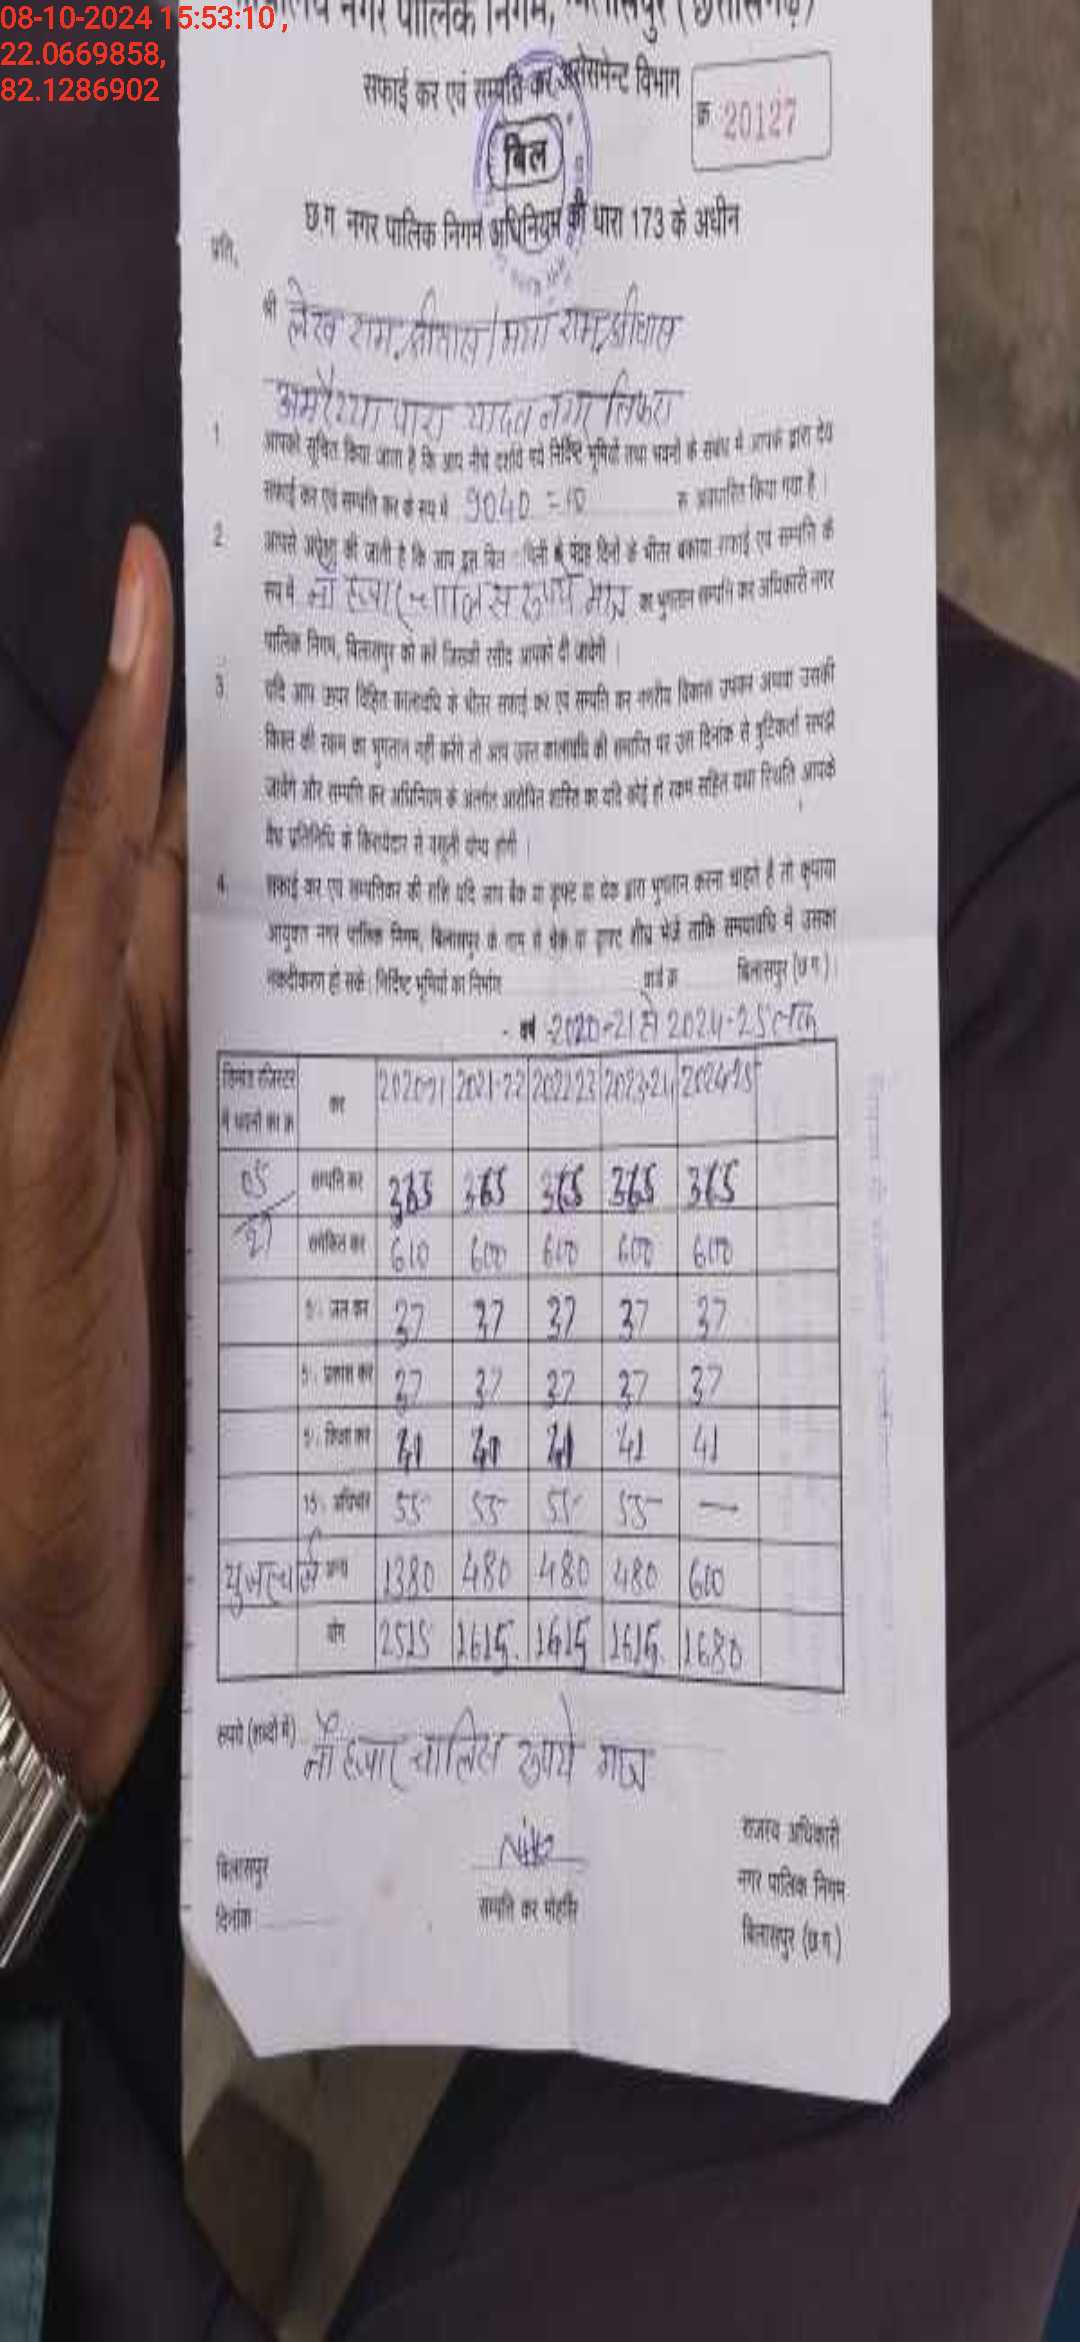 08-10-2024 15:53:10 ,
22.0669858,
82.1286902
नगर पालिक निगम, बिलासपुर (छत्तीसगढ़)
सफाई कर एवं सम्पत्ति कर असेसमेन्ट विभाग
क्र 20127
बिल
छ.ग. नगर पालिक निगम अधिनियम की धारा 173 के अधीन
प्रति,
श्री लेख राम श्रीवास / राम श्रीवास
पारा यादव नगर तिफरा
1 आपको सूचित किया जाता है कि आप नीचे दर्शाये गये निर्दिष्ट भूमियों तथा भवनों के संबंध में आपके द्वारा देय
सफाई कर एवं सम्पत्ति कर के रूप में 9040 = 10 रू अवधारित किया गया है।
2 आपसे अपेक्षा की जाती है कि आप इस बिल के पंद्रह दिनों के भीतर बकाया सफाई एवं सम्पत्ति के
रूप में नौ हजार चालिस रूपये मात्र का भुगतान सम्पत्ति कर अधिकारी नगर
पालिक निगम, बिलासपुर को करें जिसकी रसीद आपको दी जावेगी ।
3 यदि आप ऊपर विहित कालावधि के भीतर सफाई कर एवं सम्पत्ति कर नगरीय विकास उपकर अथवा उसकी
किस्त की रकम का भुगतान नहीं करेंगे तो आप उक्त कालावधि की समाप्ति पर उस दिनांक से त्रुटिकर्ता समझे
जावेंगे और सम्पत्ति कर अधिनियम के अंतर्गत आरोपित शास्ति का यदि कोई हो रकम सहित यथा स्थिति आपके
वैध प्रतिनिधि के किरायेदार से वसूली योग्य होगी ।
4 सफाई कर एवं सम्पत्तिकर की राशि यदि आप बैंक या ड्राफ्ट या चेक द्वारा भुगतान करना चाहते हैं तो कृपया
आयुक्त नगर पालिक निगम, बिलासपुर के नाम से चेक या ड्राफ्ट शीघ्र भेजें ताकि समयावधि में उसका
नकदीकरण हो सके। निर्दिष्ट भूमियों का निर्माण वार्ड क्र बिलासपुर (छ.ग.)।
वर्ष 2020-21 से 2024-25 तक
डिमांड रजिस्टर में भवनों का क्र कर 2020-21 2021-22 2022-23 2023-24 2024-25
05 सम्पत्ति कर 365 365 365 365 365
27 समेकित कर 610 600 600 600 600
जल कर 37 37 37 37 37
5% प्रकाश कर 37 37 37 37 37
5% शिक्षा कर 41 41 41 41 41
15% अधिभार 55 55 55 55 —
अन्य 1380 480 480 480 600
योग 2515 1615 1615 1615 1680
रूपये (शब्दों में) नौ हजार चालिस रूपये मात्र
राजस्व अधिकारी
बिलासपुर
नगर पालिक निगम
दिनांक
सम्पत्ति कर मोहर्रिर
बिलासपुर (छ.ग.)